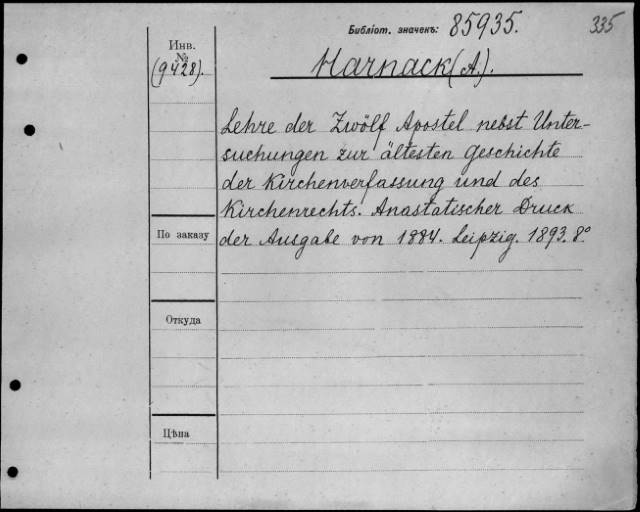 Библіот. значекъ: 85935. 335
Инв.
№
(9428).
Harnack (A.).
Lehre der Zwölf Apostel nebst Unter-
suchungen zur ältesten Geschichte
der Kirchenverfassung und des
Kirchenrechts. Anastatischer Druck
der Ausgabe von 1884. Leipzig. 1893. 8°
По заказу
Откуда
Цѣна